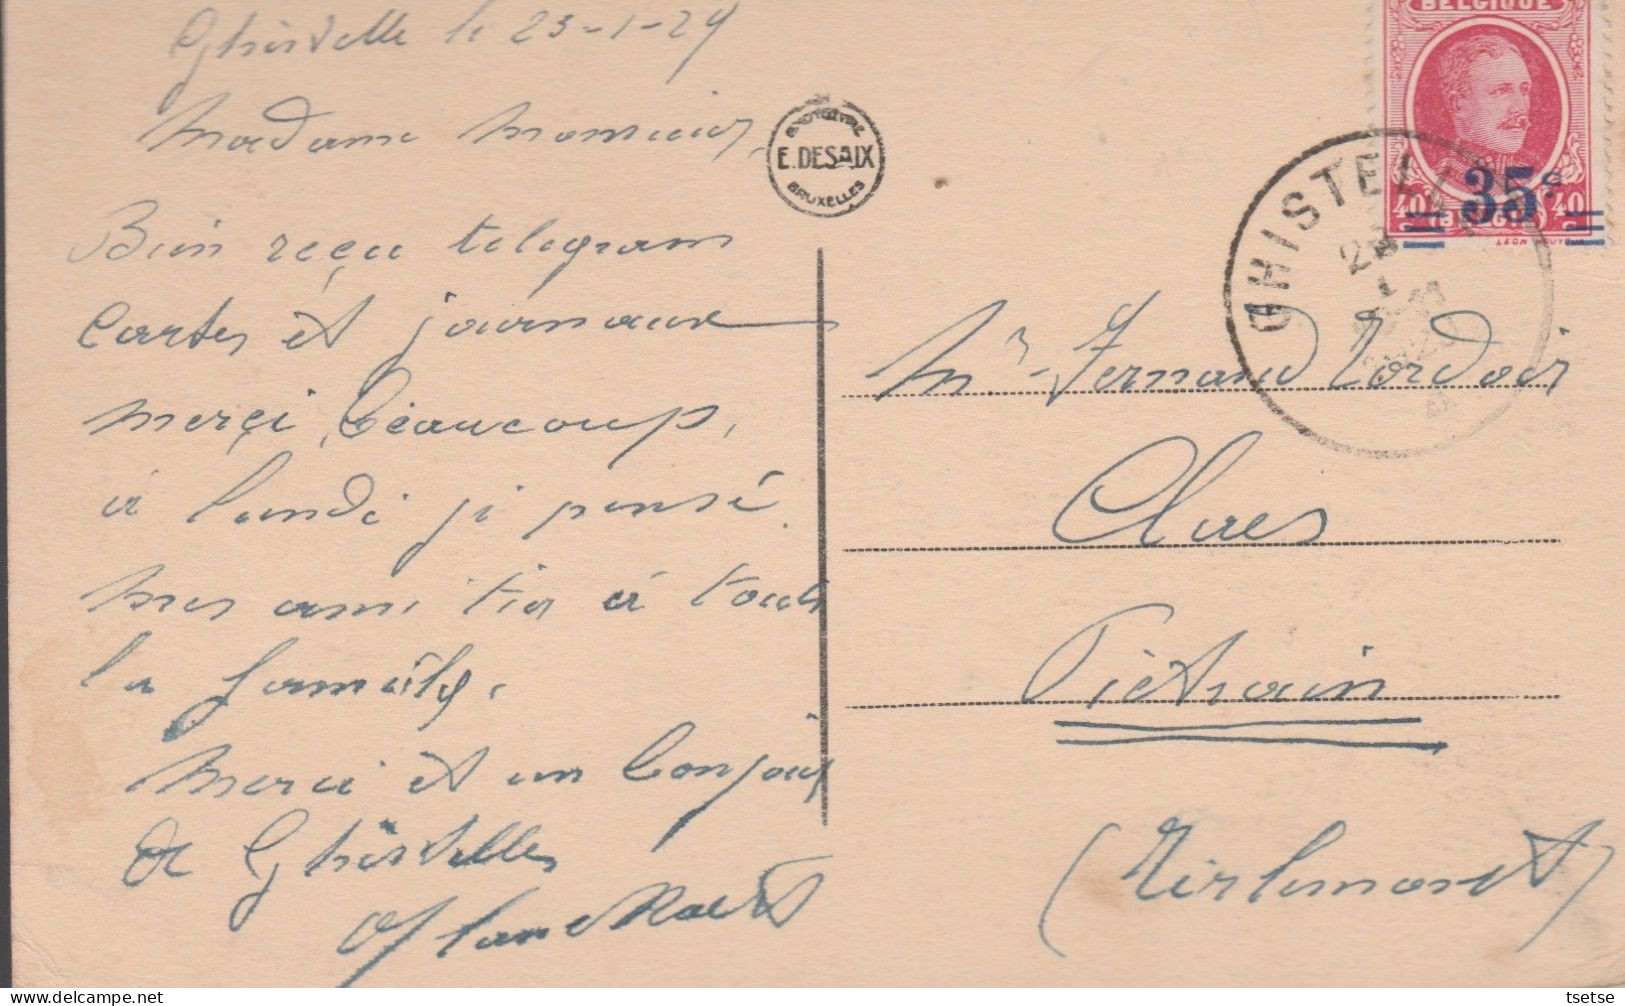 Ghistelle le 23-1-29
Madame Monsieur,
Bien reçu telegram
Cartes èt journaux
merçi, beaucoup,
à lundi ji pensé.
mes ami tié à toute
la famille.
Merci èt un bonjour
de Ghistelles
PHOTOTYPIE
E. DESAIX
BRUXELLES
BELGIQUE
35c
40 40
BELGIË
GHISTELLES
Mr Fernand Tordoir
Piètrain
(Tirlemont)
tsetse